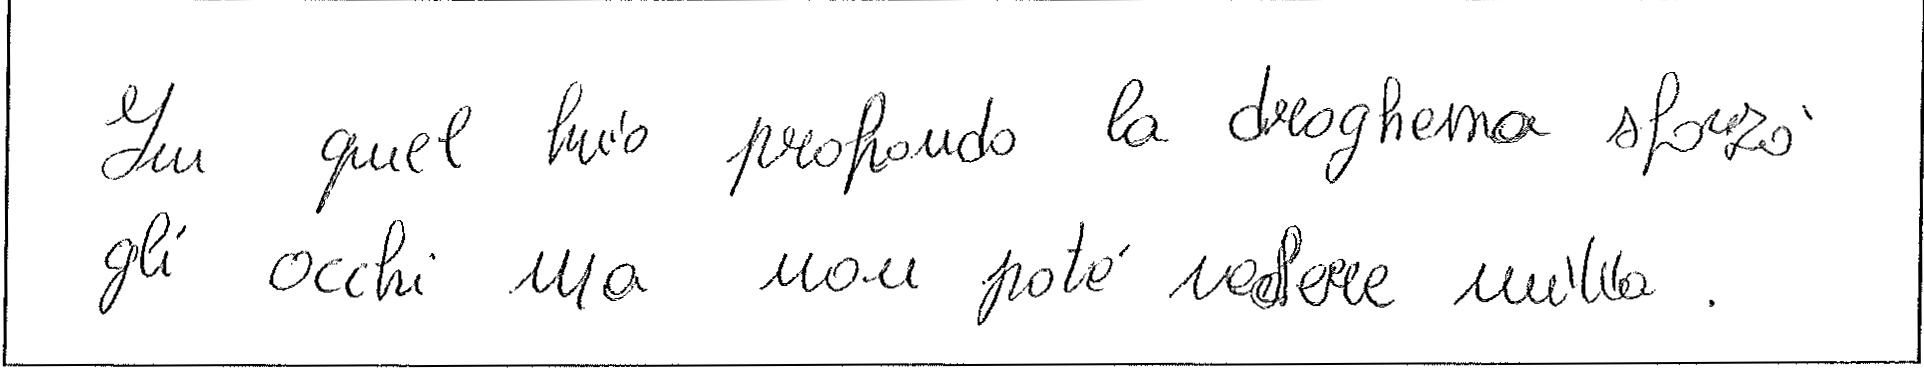 In quel buio profondo la sforzò
gli occhi ma non poté vedere nulla.